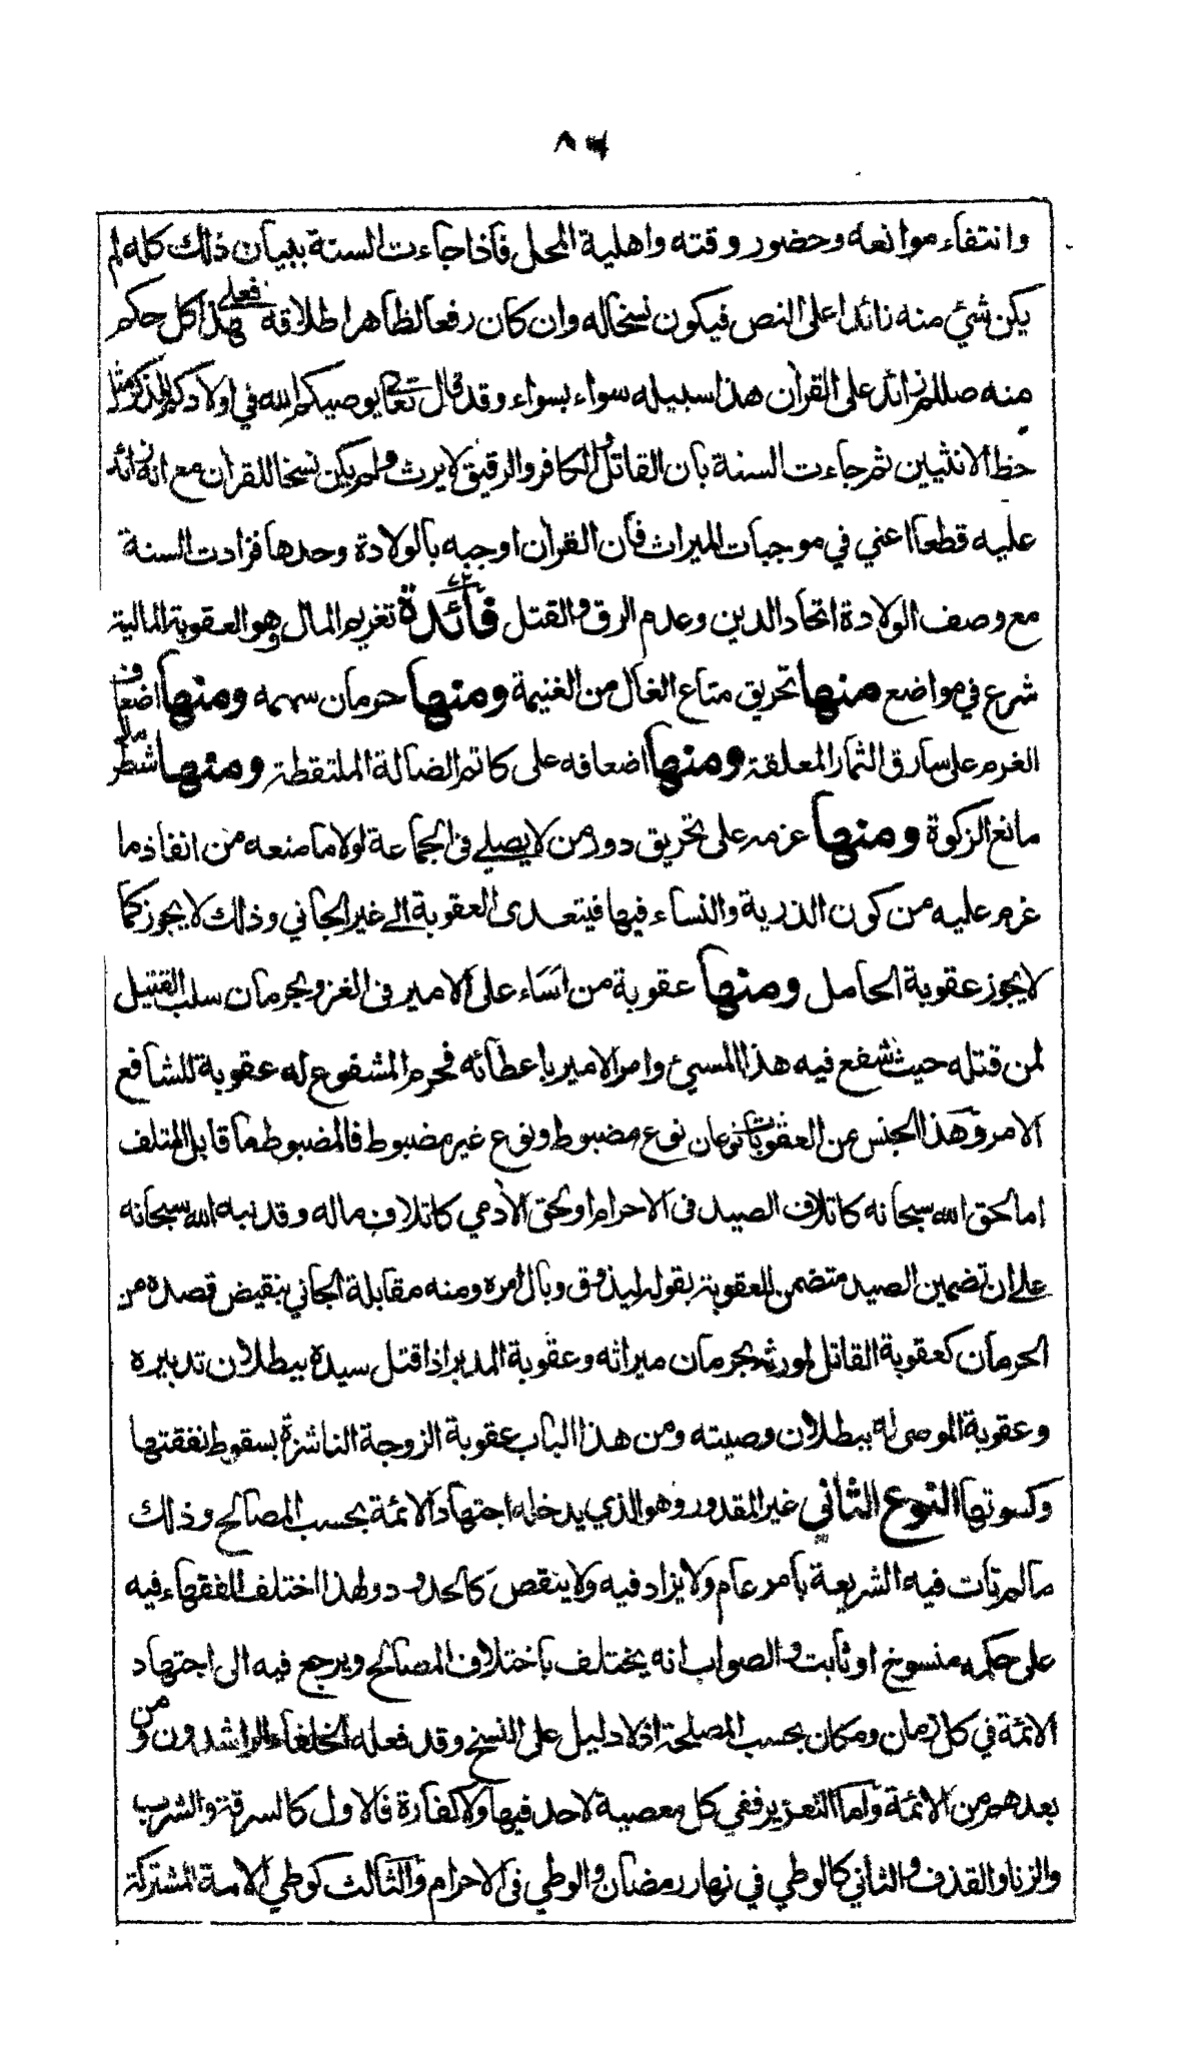 وانتفاء موانعه وحضور وقته واهلية المحل فاذا جاءت السنة ببيان ذلك كله لم
يكن شئ منه زائدا على النص فيكون نسخا له وان كان رفعا لظاهر اطلاقه فعلى هذا كل حكم
منه صللم زائد على القران هذا سبيله سواء بسواء وقد قال تعالى يوصيكم الله في اولادكم للذكر مثل
حظ الانثيين ثم جاءت السنة بان القاتل والكافر والرقيق لا يرث ولم يكن نسخا للقران مع انه زائد
عليه قطعا اعني في موجبات الميراث فان القران اوجبه بالولادة وحدها فزادت السنة
مع وصف الولادة اتحاد الدين وعدم الرق والقتل فائدة تغريم المال وهو العقوبة المالية
شرع في مواضع منها تحريق متاع الغال من الغنيمة ومنها حرمان سهمه ومنها اضعاف
الغرم على سارق الثمار المعلقة ومنها اضعافه على كاتم الضالة الملتقطة ومنها شطر مال
مانع الزكوة ومنها عزمه على تحريق دور من لا يصلي فى الجماعة لولا ما منعه من انفاذ ما
عزم عليه من كون الذرية والنساء فيها فيتعدى العقوبة الى غير الجاني وذلك لا يجوز كما
لا يجوز عقوبة الحامل ومنها عقوبة من اساء على الامير فى الغزو بحرمان سلب القتيل
لمن قتله حيث شفع فيه هذا المسئ وامر الامير باعطائه فحرم المشفوع له عقوبة للشافع
الامر وهذا الجنس من العقوبات نوعان نوع مضبوط ونوع غير مضبوط فالمضبوط ما قابل المتلف
اما لحق الله سبحانه كاتلاف الصيد فى الاحرام او لحق الآدمي كاتلاف ماله وقد نبه الله سبحانه
على ان تضمين الصيد متضمن للعقوبة بقوله ليذوق وبال امره ومنه مقابلة الجاني بنقيض قصده من
الحرمان كعقوبة القاتل لمورثه بحرمان ميراثه وعقوبة المدبر اذا قتل سيده ببطلان تدبيره
وعقوبة الموصى له ببطلان وصيته ومن هذا الباب عقوبة الزوجة الناشزة بسقوط نفقتها
وكسوتها النوع الثاني غير المقدور وهو الذي يدخله اجتهاد الائمة بحسب المصالح وذلك
ما لم تات فيه الشريعة بامر عام ولا يزاد فيه ولا ينقص كالحدود ولهذا اختلف الفقهاء فيه
على حكمه منسوخ او ثابت والصواب انه يختلف باختلاف المصالح ويرجع فيه الى اجتهاد
الائمة في كل زمان ومكان بحسب المصلحة اذ لا دليل على النسخ وقد فعله الخلفاء الراشدون ومن
بعدهم من الائمة واما التعزير ففي كل معصية لا حد فيها ولا كفارة فالاول كالسرقة والشرب
والزنا والقذف والثاني كالوطي في نهار رمضان والوطي فى الاحرام والثالث كوطي الامة المشتركة